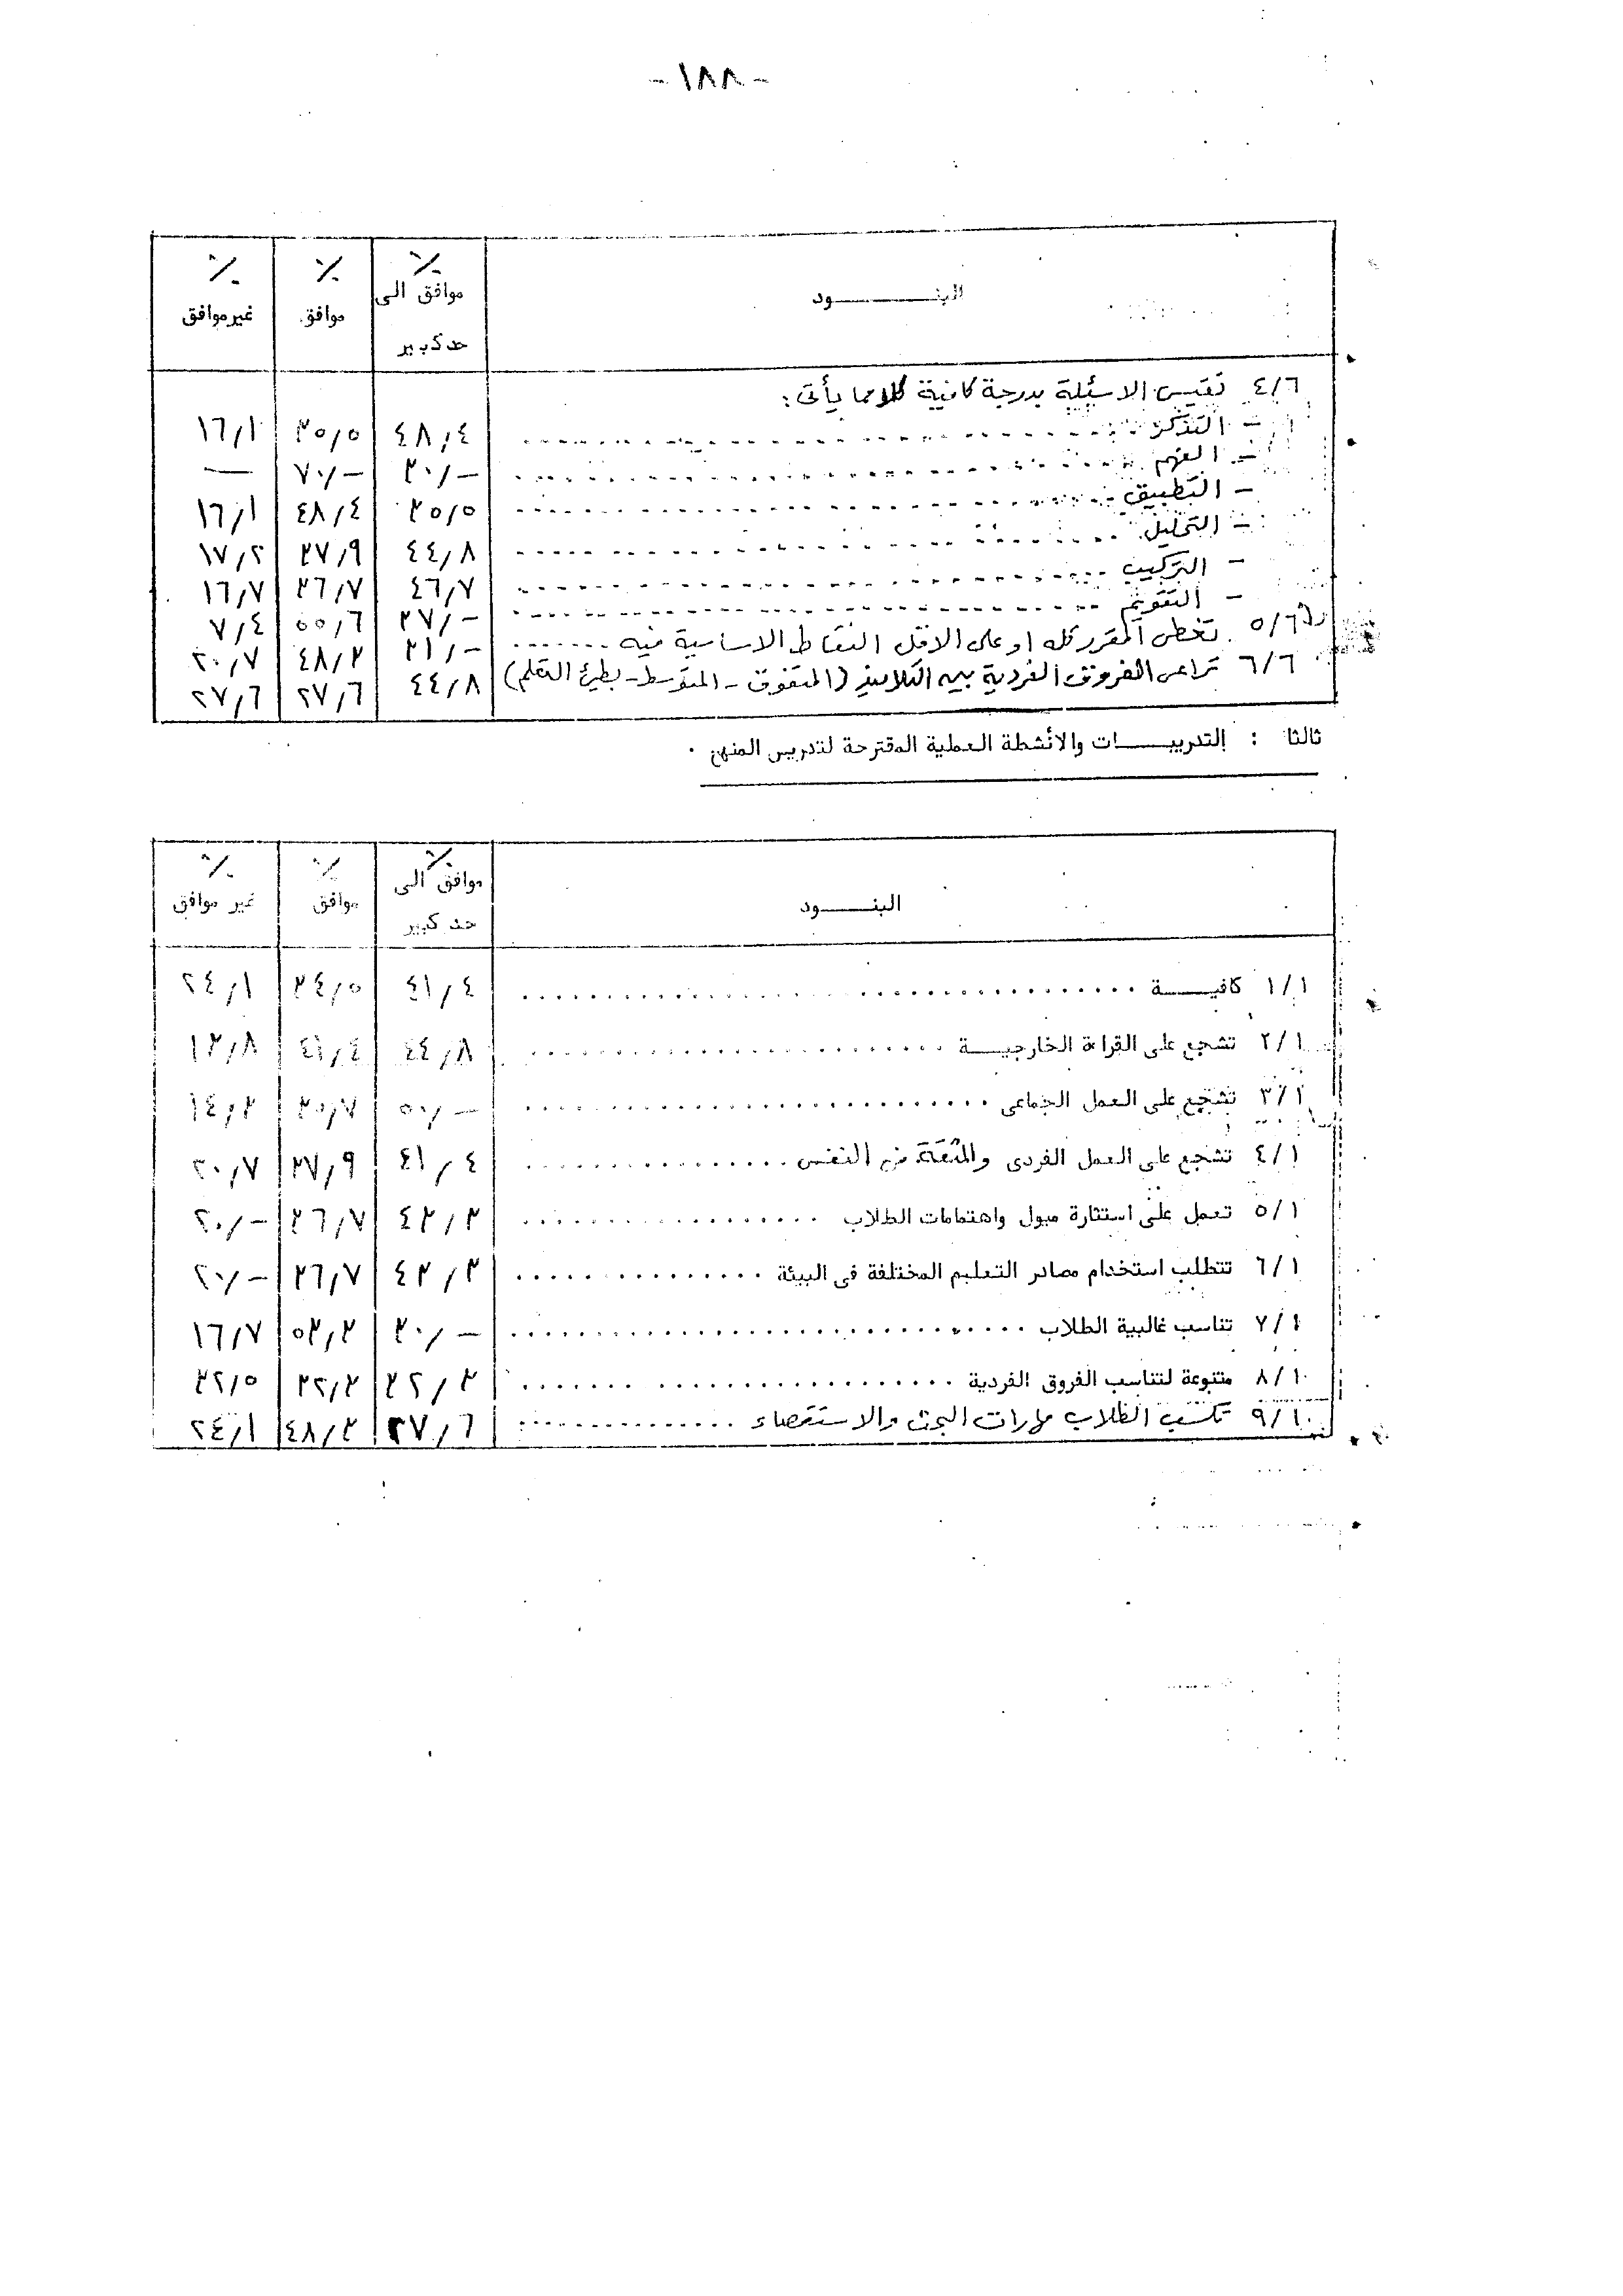 - ١٨٨ -
البنــــــــود | ٪ موافق الى حد كبير | ٪ موافق | ٪ غير موافق
٤/٦ تقيس الاسئلة بدرجة كافية كلا مما يأتى :
- التذكر | ٤٨,٤ | ٣٥,٥ | ١٦,١
- الفهم | ٣٠,- | ٧٠,- | —
- التطبيق | ٣٥,٥ | ٤٨,٤ | ١٦,١
- التحليل | ٤٤,٨ | ٣٧,٩ | ١٧,٢
- التركيب | ٤٦,٧ | ٣٦,٧ | ١٦,٧
- التقويم | ٣٧,- | ٥٥,٦ | ٧,٤
٥/٦ تغطى المقرر كله او على الاقل النقاط الاساسية فيه | ٣١,- | ٤٨,٣ | ٢٠,٧
٦/٦ تراعى الفروق الفردية بين التلاميذ (المتفوق - المتوسط - بطيئ التعلم) | ٤٤,٨ | ٢٧,٦ | ٢٧,٦
ثالثا : التدريبـــــات والأنشطة العملية المقترحة لتدريس المنهج .
البنـــــود | ٪ موافق الى حد كبير | ٪ موافق | ٪ غير موافق
١/١ كافيـــــة | ٤١,٤ | ٣٤,٥ | ٢٤,١
٢/١ تشجع على القراءة الخارجيـــة | ٤٤,٨ | ٤١,٤ | ١٣,٨
٣/١ تشجع على العمل الجماعى | ٥٠,- | ٣٥,٧ | ١٤,٣
٤/١ تشجع على العمل الفردى والثقة فى النفس | ٤١,٤ | ٣٧,٩ | ٢٠,٧
٥/١ تعمل على استثارة ميول واهتمامات الطلاب | ٤٣,٣ | ٣٦,٧ | ٢٠,-
٦/١ تتطلب استخدام مصادر التعليم المختلفة فى البيئة | ٤٣,٣ | ٣٦,٧ | ٢٠,-
٧/١ تناسب غالبية الطلاب | ٣٠,- | ٥٣,٣ | ١٦,٧
٨/١٠ متنوعة لتناسب الفروق الفردية
٩/١٠ تكسب الطلاب مهارات البحث والاستقصاء | ٢٧,٦ | ٤٨,٣ | ٢٤,١